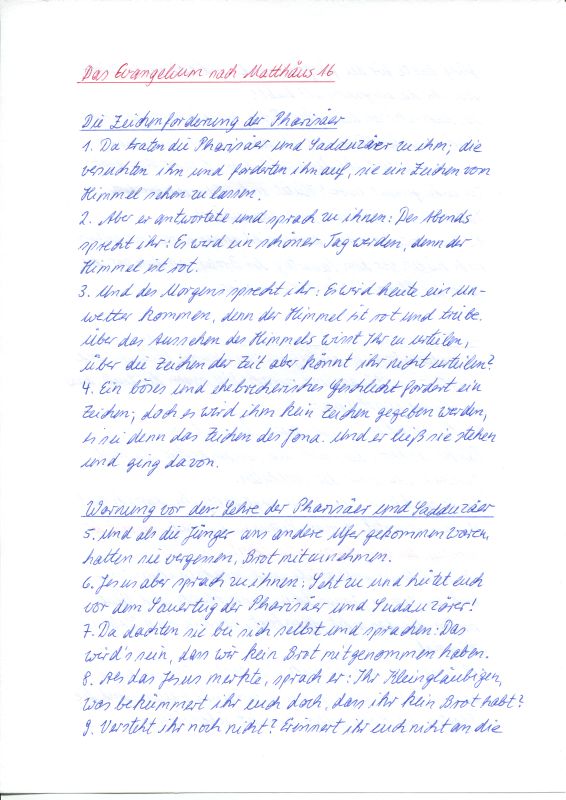 Das Evangelium nach Matthäus 16
Die Zeichenforderung der Pharisäer
1. Da traten die Pharisäer und Sadduzäer zu ihm; die
versuchten ihn und forderten ihn auf, sie ein Zeichen vom
Himmel sehen zu lassen.
2. Aber er antwortete und sprach zu ihnen: Des Abends
sprecht ihr: Es wird ein schöner Tag werden, denn der
Himmel ist rot.
3. Und des Morgens sprecht ihr: Es wird heute ein Un-
wetter kommen, denn der Himmel ist rot und trübe.
Über das Aussehen des Himmels wisst Ihr zu urteilen,
über die Zeichen der Zeit aber könnt ihr nicht urteilen?
4. Ein böses und ehebrecherisches Geschlecht fordert ein
Zeichen; doch es wird ihm kein Zeichen gegeben werden,
es sei denn das Zeichen des Jona. Und er ließ sie stehen
und ging davon.
Warnung vor der Lehre der Pharisäer und Sadduzäer
5. Und als die Jünger ans andere Ufer gekommen waren,
hatten sie vergessen, Brot mitzunehmen.
6. Jesus aber sprach zu ihnen: Seht zu und hütet euch
vor dem Sauerteig der Pharisäer und Sadduzäer!
7. Da dachten sie bei sich selbst und sprachen: Das
wird's sein, dass wir kein Brot mitgenommen haben.
8. Als das Jesus merkte, sprach er: Ihr Kleingläubigen,
was bekümmert ihr euch doch, dass ihr kein Brot habt?
9. Versteht ihr noch nicht? Erinnert ihr euch nicht an die